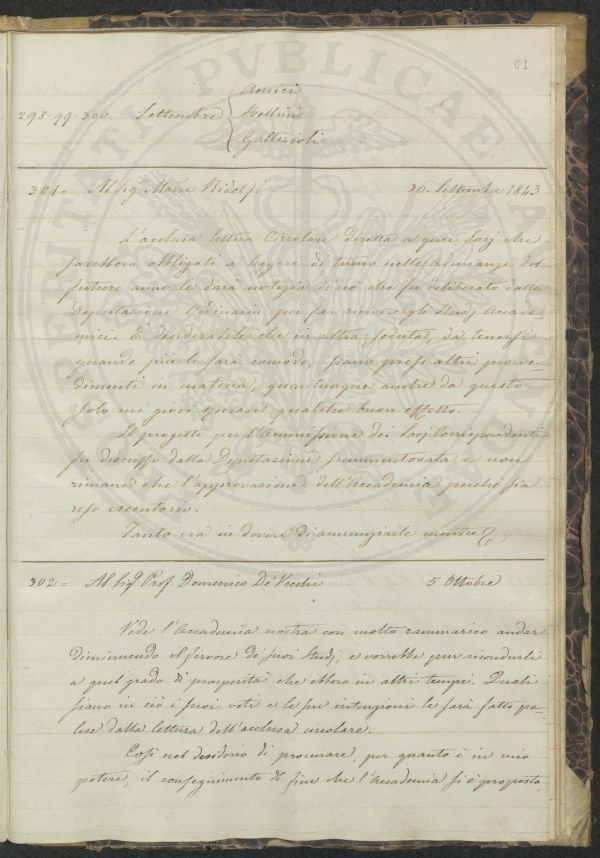 61
Amici
298-99-300 Settembre Bellini
Gallizioli
301 = Al Sig Marse Ridolfi 30 Settembre 1843
L'acclusa lettera Circolare diretta a quei Socj che
sarebbero obbligati a leggere di turno nelle adunanze del
futuro anno le darà notizia di ciò che fu deliberato dalla
Deputazione Ordinaria per far risorgere gli studj Accade
mici. È desiderabile che in altra seduta, da tenersi
quando più le sarà comodo, siano presi altri prove-
dimenti in materia, quantunque anche da questo
solo mi giovi sperare qualche buon effetto.
Il progetto per l'Ammissione dei Socj Corrispondenti
fu discusso dalla Deputazione summentovata e non
rimane che l'approvazione dell'Accademia perché sia
reso esecutorio.
Tanto era in dovere di annunziarle mentre
302 = Al Sigr Prof. Domenico De' Vecchi 5 Ottobre
Vede l'Accademia nostra con molto rammarico andar
diminuendo il fervore de' suoi Studj, e vorrebbe pur ricondurli
a quel grado di prosperità che ebbero in altri tempi. Quali
siano in ciò i suoi voti e le sue intenzioni le sarà fatto pa-
lese dalla lettura dell'acclusa circolare.
Così nel desiderio di procurare, per quanto è in mio
potere, il conseguimento di fine che l'Accademia si è proposto,